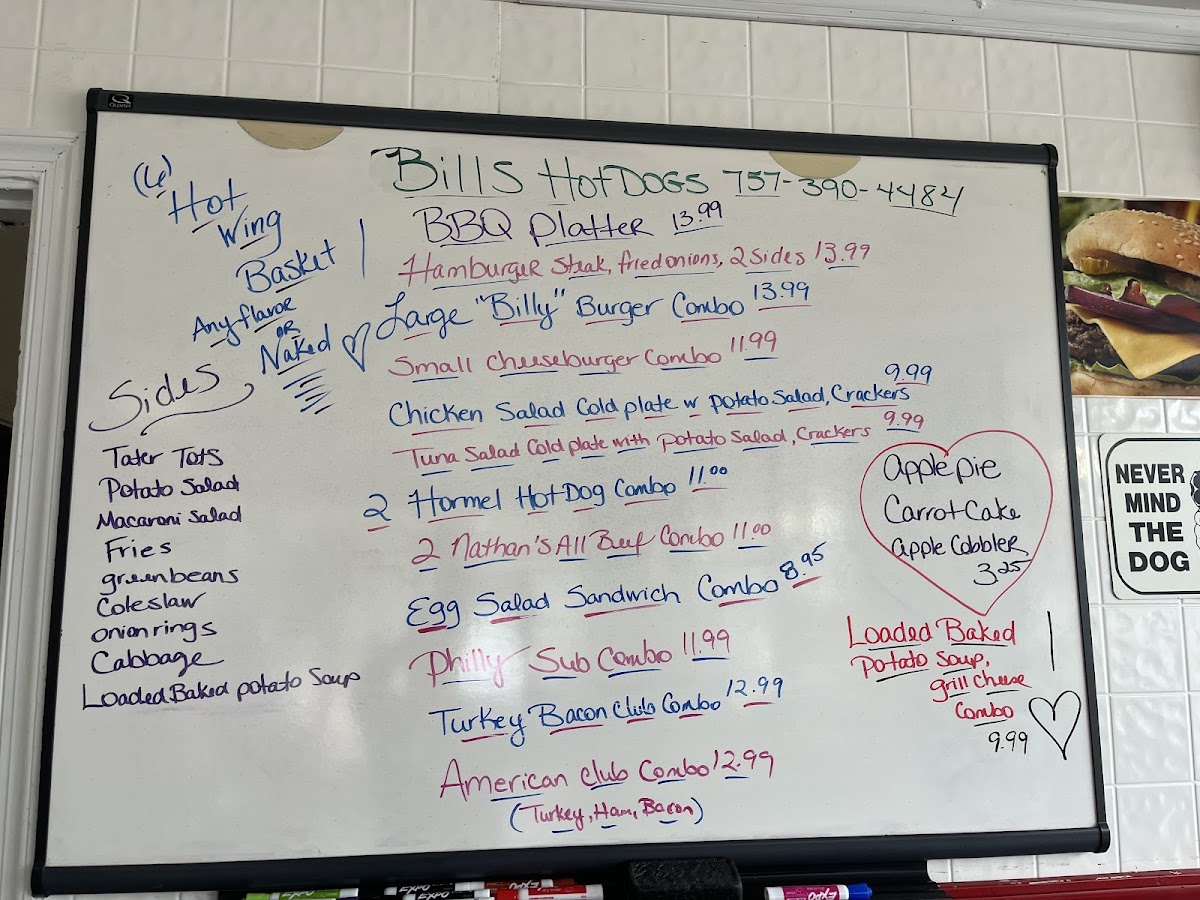 Quartet
Bills HotDOGS 757-390-4484
(6)
Hot
Wing
Basket
Any flavor
OR
Naked
Sides
Tater Tots
Potato Salad
Macaroni Salad
Fries
greenbeans
Coleslaw
onion rings
Cabbage
Loaded Baked potato Soup
BBQ Platter 13.99
Hamburger Steak, fried onions, 2 Sides 13.99
Large "Billy" Burger Combo 13.99
Small Cheeseburger Combo 11.99
Chicken Salad Cold plate w potato Salad, Crackers 9.99
Tuna Salad Cold plate with potato Salad, Crackers 9.99
2 Hormel Hot Dog Combo 11.00
2 Nathan's All Beef Combo 11.00
Egg Salad Sandwich Combo 8.95
Philly Sub Combo 11.99
Turkey Bacon Club Combo 12.99
American Club Combo 12.99
(Turkey, Ham, Bacon)
apple pie
Carrot Cake
apple Cobbler
3.25
Loaded Baked
potato Soup,
grill cheese
Combo
9.99
NEVER
MIND
THE
DOG
EXPO
EXPO
EXPO
EXPO
EXPO